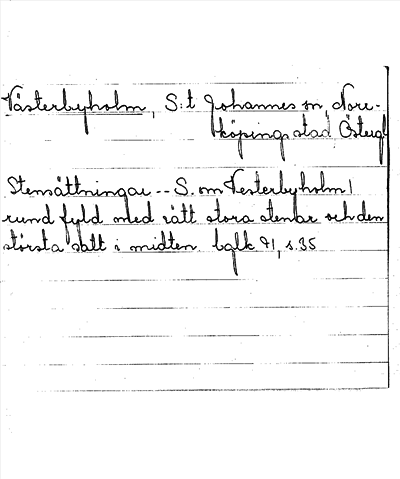 Västerbyholm, S:t Johannes sn, Norr-
köpings stad Östergl
Stensättningar -- S. om Vesterbyholm 1
rund fyld med rätt stora stenar och den
största satt i midten bglk 71, s. 35